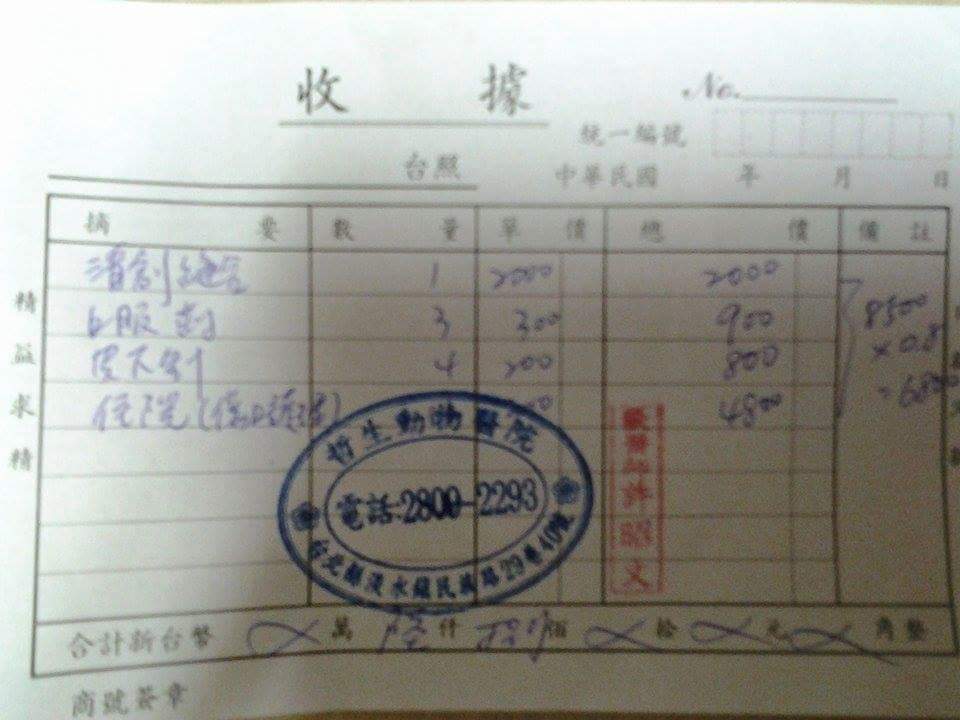 收據
No.
統一編號
台照 中華民國 年 月 日
摘要 數量 單價 總價 備註
清創縫合 1 2000 2000
口服剂 3 300 900 8500
皮下針 4 200 800 × 0.8
住院(傷口護理) 4800 = 6800
精益求精
哲生動物醫院
電話:2809-2293
台北縣淡水鎮民族路29巷40號
獸醫師許昭文
合計新台幣 萬 陸仟 捌佰 拾 元 角整
商號簽章